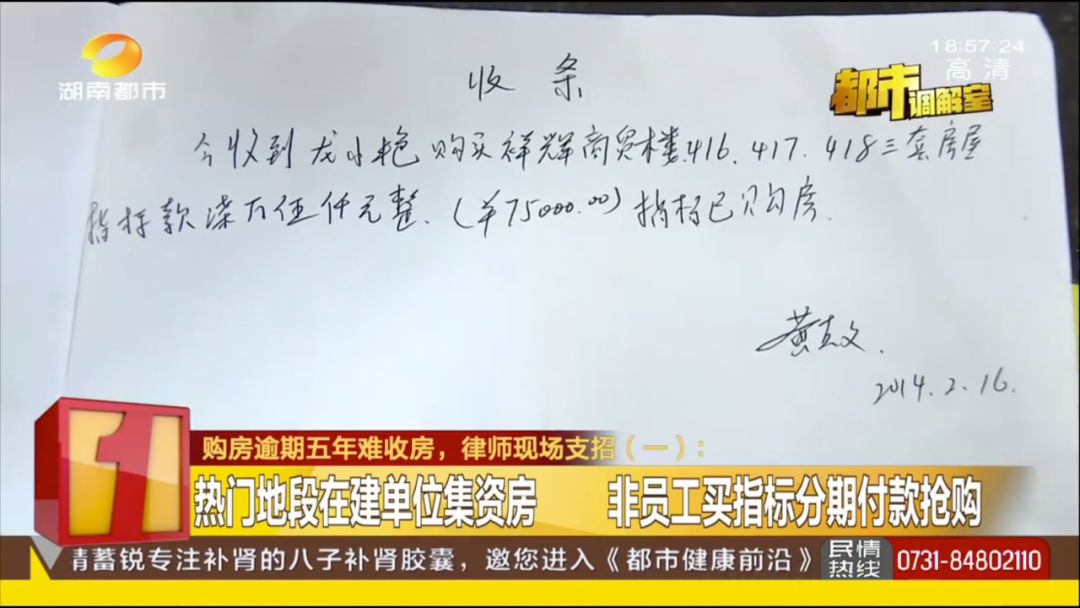 湖南都市
18:57:24
高清
都市调解室
收条
今收到龙小艳购买祥辉商贸楼.416.417.418三套房屋
指标款柒万伍仟元整.(¥75000.00)指标已购房.
2014.2.16.
1
购房逾期五年难收房，律师现场支招（一）：
热门地段在建单位集资房 非员工买指标分期付款抢购
青蓄锐专注补肾的八子补肾胶囊，邀您进入《都市健康前沿》
民情热线 0731-84802110